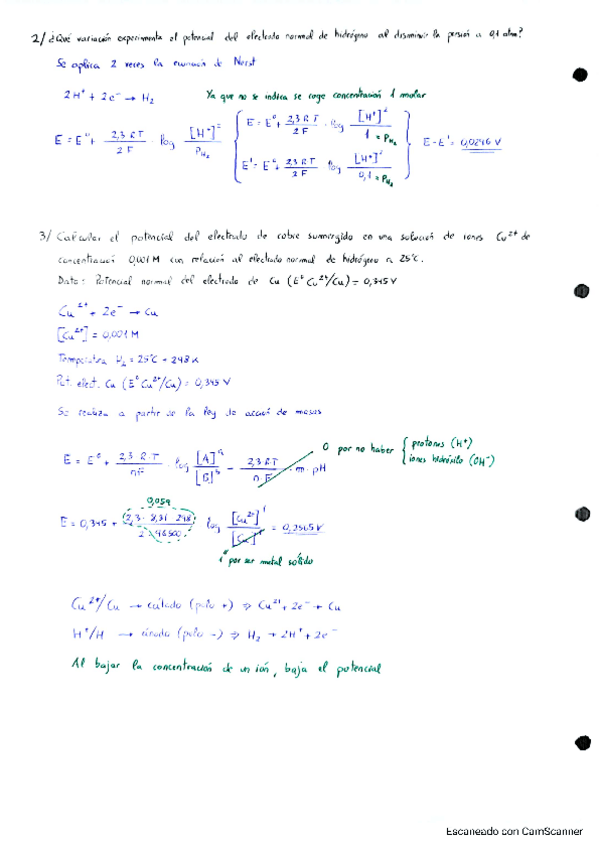 2/ ¿Qué variación experimenta el potencial del electrodo normal de hidrógeno al disminuir la persión a 0,1 atm?
Se aplica 2 veces la ecuación de Nerst
2H⁺ + 2e⁻ → H₂ Ya que no se indica se coge concentración 1 molar
E = E° + 2,3 RT / 2F · log [H⁺]² / P_H₂ { E = E° + 2,3 RT / 2F · log [H⁺]² / 1 = P_H₂
E' = E° + 2,3 RT / 2F · log [H⁺]² / 0,1 = P_H₂ } E - E' = 0,0296 V
3/ Calcular el potencial del electrodo de cobre sumergido en una solución de iones Cu²⁺ de
concentración 0,001 M con relación al electrodo normal de hidrógeno a 25°C.
Dato: Potencial normal del electrodo de Cu (E° Cu²⁺/Cu) = 0,345 V
Cu²⁺ + 2e⁻ → Cu
[Cu²⁺] = 0,001 M
Temperatura H₂ = 25°C = 298 K
Pot. elect. Cu (E° Cu²⁺/Cu) = 0,345 V
Se realiza a partir de la ley de acción de masas
E = E° + 2,3·R·T / nF · log [A]ᵃ / [B]ᵇ - 2,3·RT / n·F · m·pH 0 por no haber { protones (H⁺)
iones hidrósilo (OH⁻)
0,059
E = 0,345 + 2,3 · 8,31 · 298 / 2 · 96500 log [Cu²⁺]¹ / [Cu]¹ = 0,2565 V
1 por ser metal sólido
Cu²⁺/Cu → cátodo (polo +) ⇒ Cu²⁺ + 2e⁻ → Cu
H⁺/H → ánodo (polo -) ⇒ H₂ → 2H⁺ + 2e⁻
Al bajar la concentración de un ión, baja el potencial
Escaneado con CamScanner